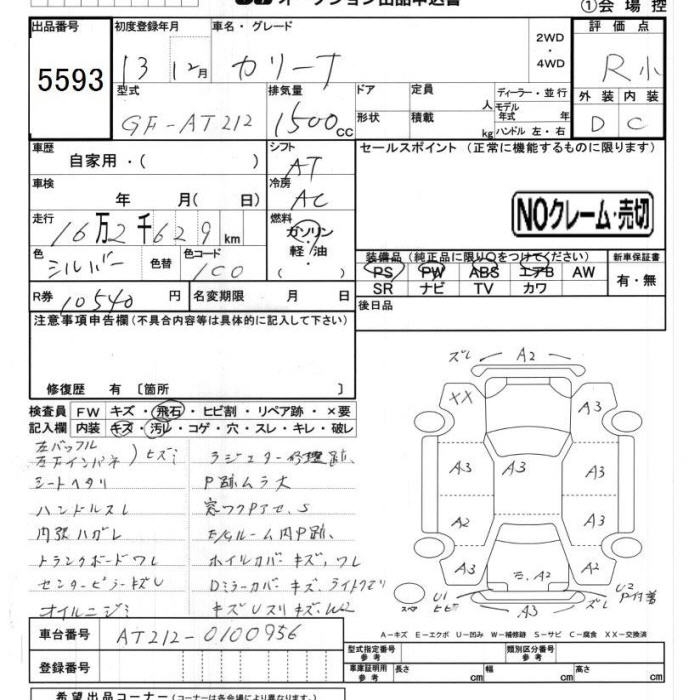 オークション出品申込書
①会場控
出品番号
5593
初度登録年月
13 12月
車名・グレード
カリーナ
2WD
・
4WD
評価点
R小
外装 内装
D C
型式
GF-AT212
排気量
1500cc
ドア
形状
定員
人
積載
kg
ディーラー・並行
モデル年式 年
ハンドル 左・右
車歴
自家用・( )
シフト
AT
セールスポイント (正常に機能するものに限ります)
NOクレーム・売切
車検
年 月( 日)
冷房
AC
走行
16万2千629km
燃料
ガソリン
軽油
( )
色
シルバー
色替
色コード
1C0
装備品 (純正品に限り○をつけてください)
PS PW ABS エアB AW
SR ナビ TV カワ
新車保証書
有・無
R券
10540円
名変期限 月 日
後日品
注意事項申告欄 (不具合内容等は具体的に記入して下さい)
修復歴 有 〔箇所 〕
検査員
記入欄
FW キズ・飛石・ヒビ割・リペア跡・×要
内装 キズ・汚レ・コゲ・穴・スレ・キレ・破レ
左バックフル
ヒズミ
シートヘタリ
ハンドルスレ
内張ハガレ
トランクボードワレ
センターピラーキズU
オイルニジミ
ラジエター修理跡、
P跡ムラ大
窓ワクPアセ、S
ルーム内P跡、
ホイルカバーキズ、ワレ
Dミラーカバーキズ、ライトクモリ
キズUスリキズ、W2
ズレ A2
XX A3
A3 A3 A3
A2 A3
A3 A2 A2
U1
ヒビ
A3
ズレ
U2
P付着
スペア
A-キズ E-エクボ U-凹み W-補修跡 S-サビ C-腐食 XX-交換済
車台番号
AT212-0100956
登録番号
型式指定番号
参考
類別区分番号
参考
車庫証明用
参考
長さ cm
幅 cm
高さ cm
希望出品コーナー (コーナーは各会場により異なります。)